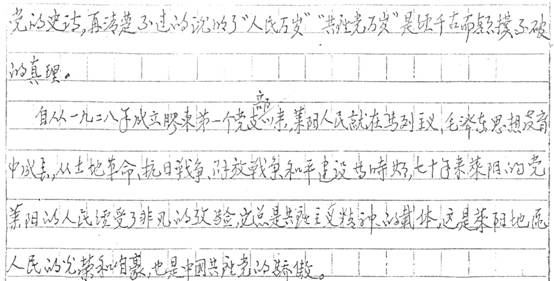 党的史诗,再清楚不过的说明了"人民万岁""共产党万岁"是颠千古而颠撲不破
的真理。
自从一九二八年成立膠東第一个党支部以来,莱阳人民就在马列主义,毛泽东思想哺育
中成长,从土地革命,抗日战争,解放战争和平建设各时期,七十年来莱阳的党
莱阳的人民经受了非凡的考验,它总是共产主义精神的载体,这是莱阳地区
人民的光荣和自豪,也是中国共产党的骄傲。